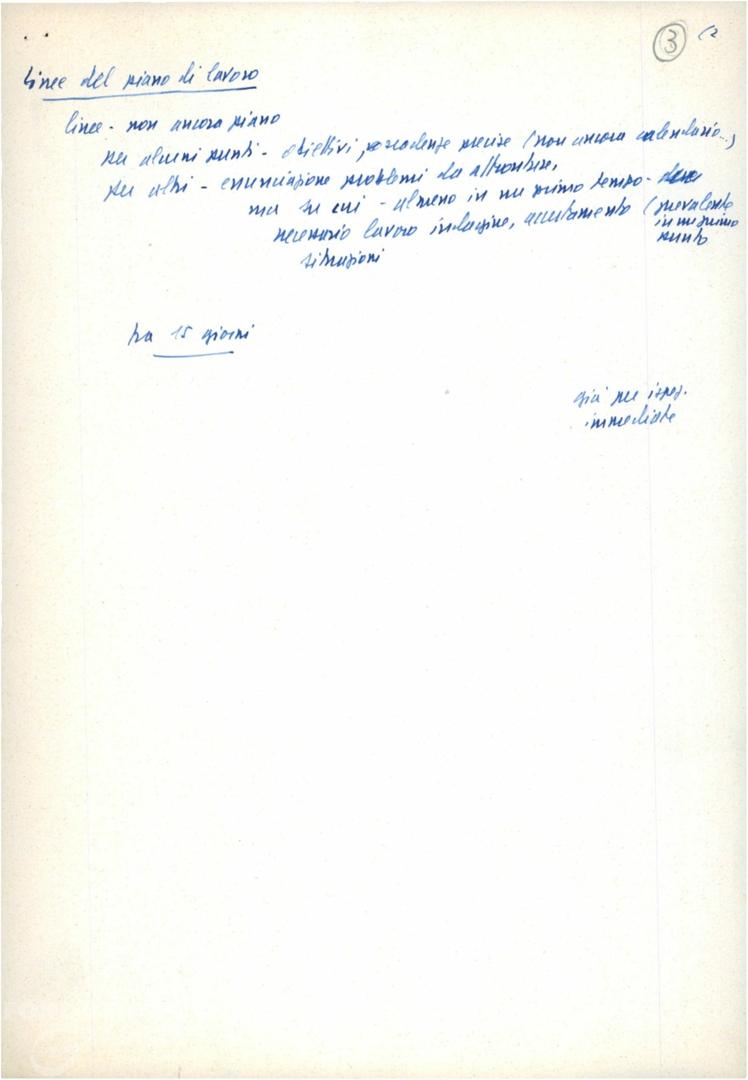 3
Linee del piano di lavoro
linee - non ancora piano
per alcuni punti - obiettivi, scadenze precise (non ancora calendario...)
per altri - enunciazione problemi da affrontare,
ma su cui - almeno in un primo tempo -
necessario lavoro indagine, accertamento (prevalente
in un primo
punto
situazioni
tra 15 giorni
già per ispez.
immediate